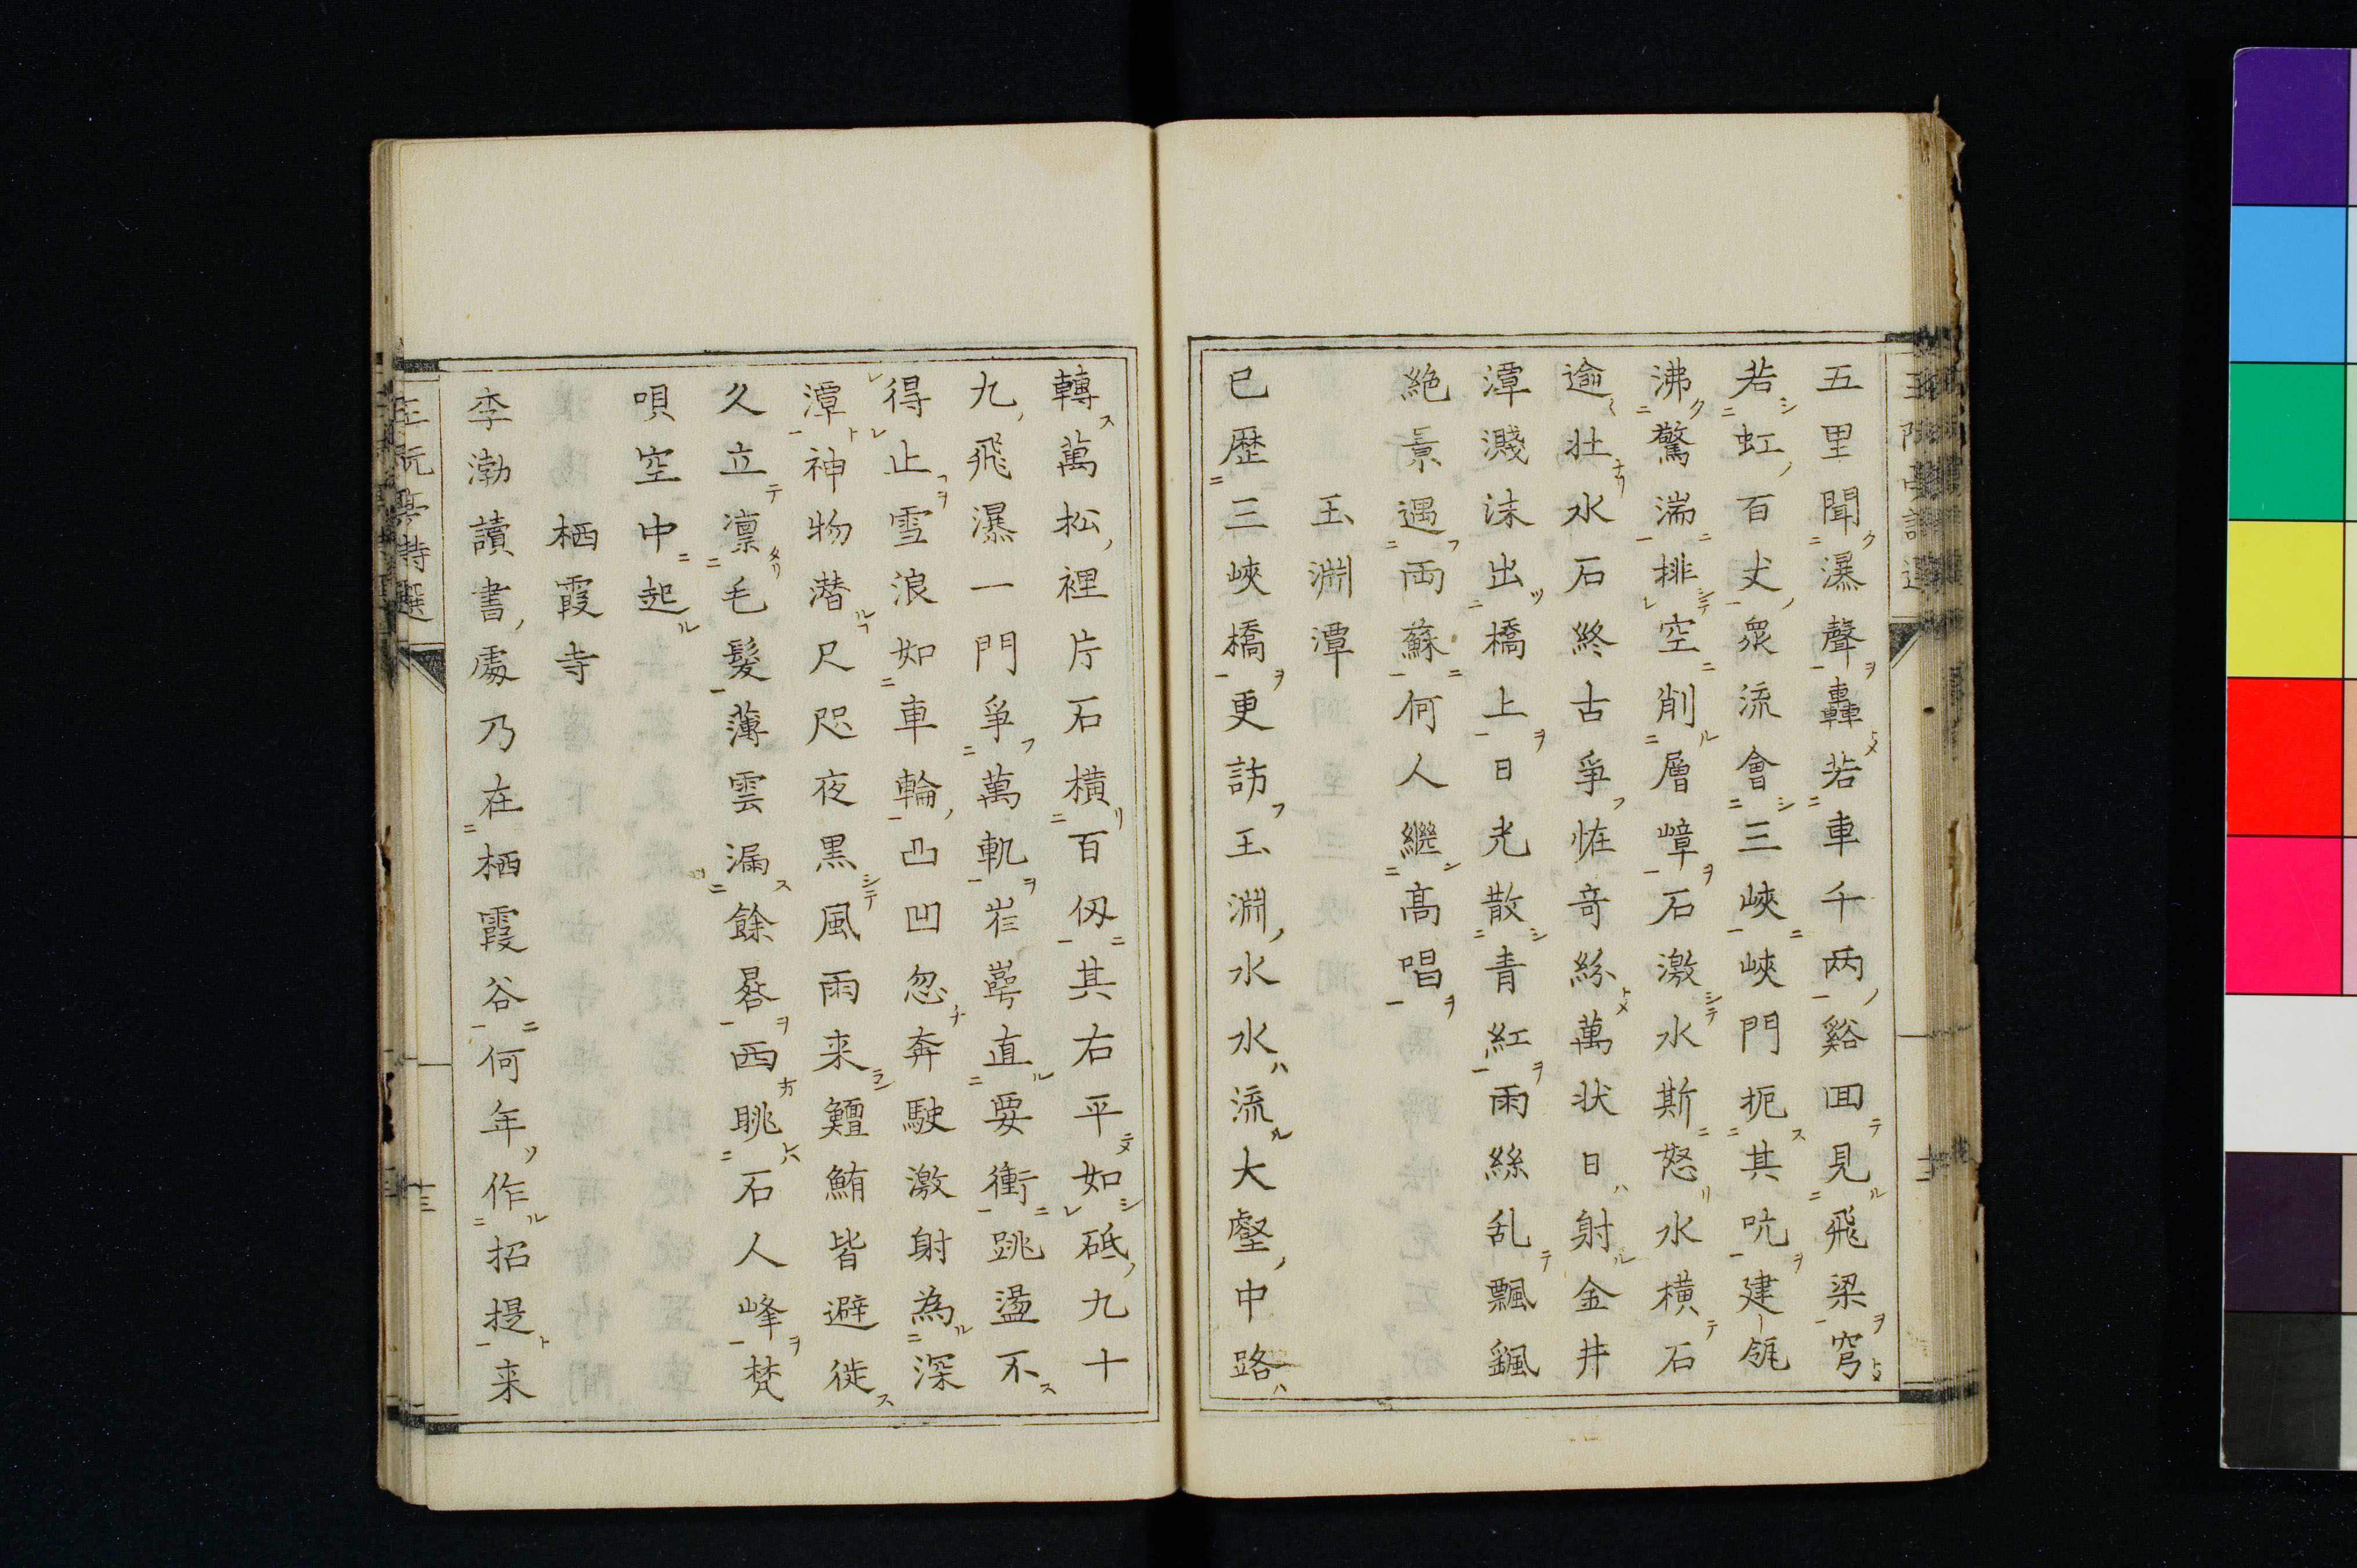 五里聞瀑聲轟若車千两谿回見飛梁穹
若虹百丈衆流會三峽峽門扼其吭建瓴
沸驚湍排空削層嶂石激水斯怒水横石
逾壮水石終古爭恠竒紛萬状日射金井
潭濺沫出橋上日光散青紅雨絲乱飄颻
絶景遇両蘇何人繼髙唱
玉淵潭
已歴三峽橋更訪玉淵水水流大壑中路
轉萬松裡片石横百仭其右平如砥九十
九飛瀑一門爭萬軌崔嵂直要衝跳盪不
得止雪浪如車輪凸凹忽奔駛激射為深
潭神物潜尺咫夜黒風雨来鱣鮪皆避徙
久立凛毛髮薄雲漏餘晷西眺石人峰梵
唄空中起
栖霞寺
李渤讀書處乃在栖霞谷何年作招提来
王阮亭詩選
十三